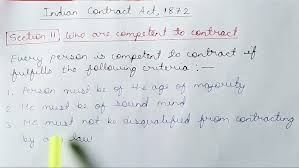 Indian Contract Act, 1872
Section 11, Who are competent to contract
Every person is competent to contract if
fulfills the following criteria :-
1. Person must be of the age of majority
2. He must be of sound mind
3. He must not be disqualified from contracting
by law